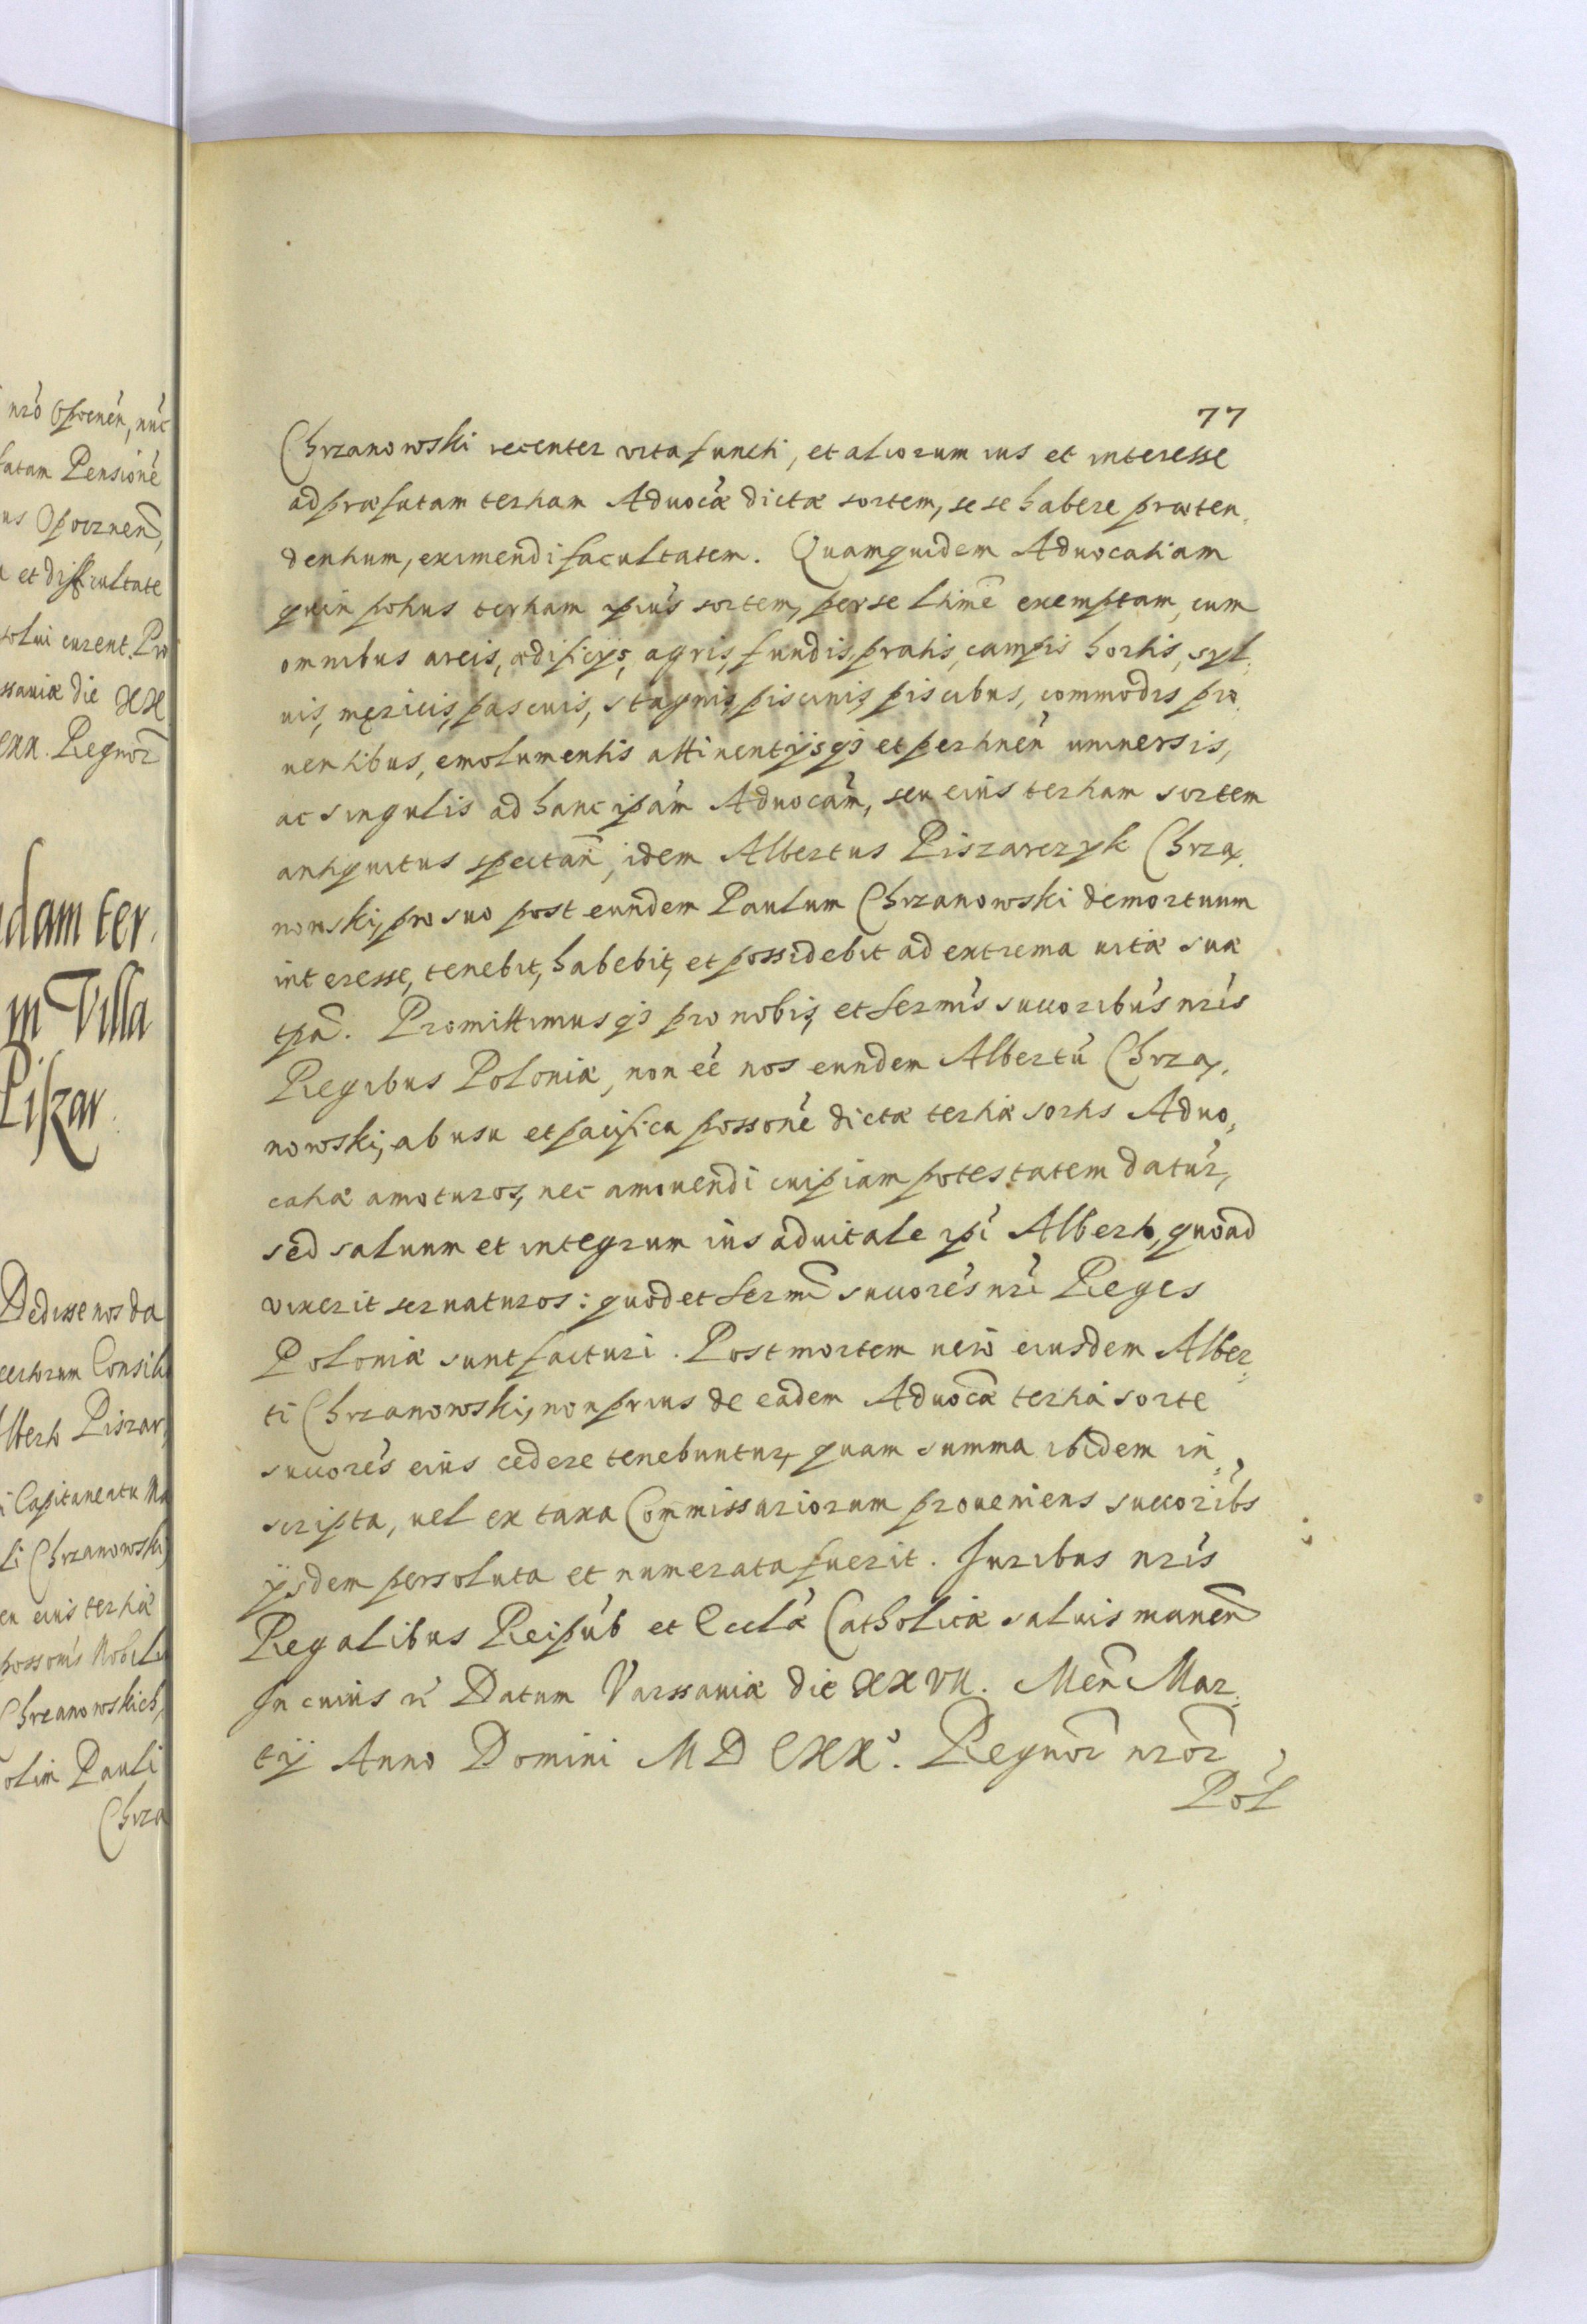 nrõ Opoenen, nuc
fatam Pensione
us Opocznen,
a et difficultate
solui curent. Pro
ssauiæ die XX
CXX. Regnor
dam ter.
in Villa
Piszar.
Dedisse nos da
certorum Consili
Alberto Piszar
i Capitaneatu Ma
li Chrzanowski
en eius tertiæ
possonis Nobili
Chrzanowskich,
olim Pauli
Chrza
77
Chrzanowski recenter vita functi, et aliorum ius et interesse
ad præfatam tertiam Aduocæ dictæ sortem, se se habere præten,
dentium, eximendi facultatem. Quamquidem Aduocatiam
quin potius tertiam ipius sortem, per se ltime exemptam, cum
omnibus areis, ædificijs, agris, fundis, pratis, campis hortis, syl,
uis, męricis, pascuis, stagnis, piscinis, piscibus, commodis pro,
uentibus, emolumentis attinentijsq; et pertinen uniuersis,
ac singulis ad hanc ipam Aduocam, seu eius tertiam sortem
antiquitus spectan, idem Albertus Piszarczyk Chrza,
nowski, pro suo post eundem Paulum Chrzanowski demortuum
interesse, tenebit, habebit, et possidebit ad extrema uitæ suæ
tpa. Promittimusq; pro nobis, et Sermis succoribus nris
Regibus Poloniæ, non ee nos eundem Albertu Chrza,
nowski, ab usu et pacifica possone dictæ tertiæ sortis Aduo,
catiæ amoturos, nec amouendi cuipiam potestatem datur,
sed saluum et integrum ius aduitale ipi Alberto, quoad
vixerit seruaturos: quod et Sermi succores nri Reges
Poloniæ sunt facturi. Post mortem uero eiusdem Alber,
ti Chrzanowski, non prius de eadem Aduoca tertia sorte
succores eius cedere tenebuntur, quam summa ibidem in,
scripta, uel ex taxa Commissariorum proueniens succoribs
ijsdem persoluta et numerata fuerit. Iuribus nris
Regalibus Reipub et Eccla Catholicæ saluis manen
In cuius r Datum Varssauiæ die XXVII. Men Mar,
tij Anno Domini MDCXX. Regnor nror
Pol